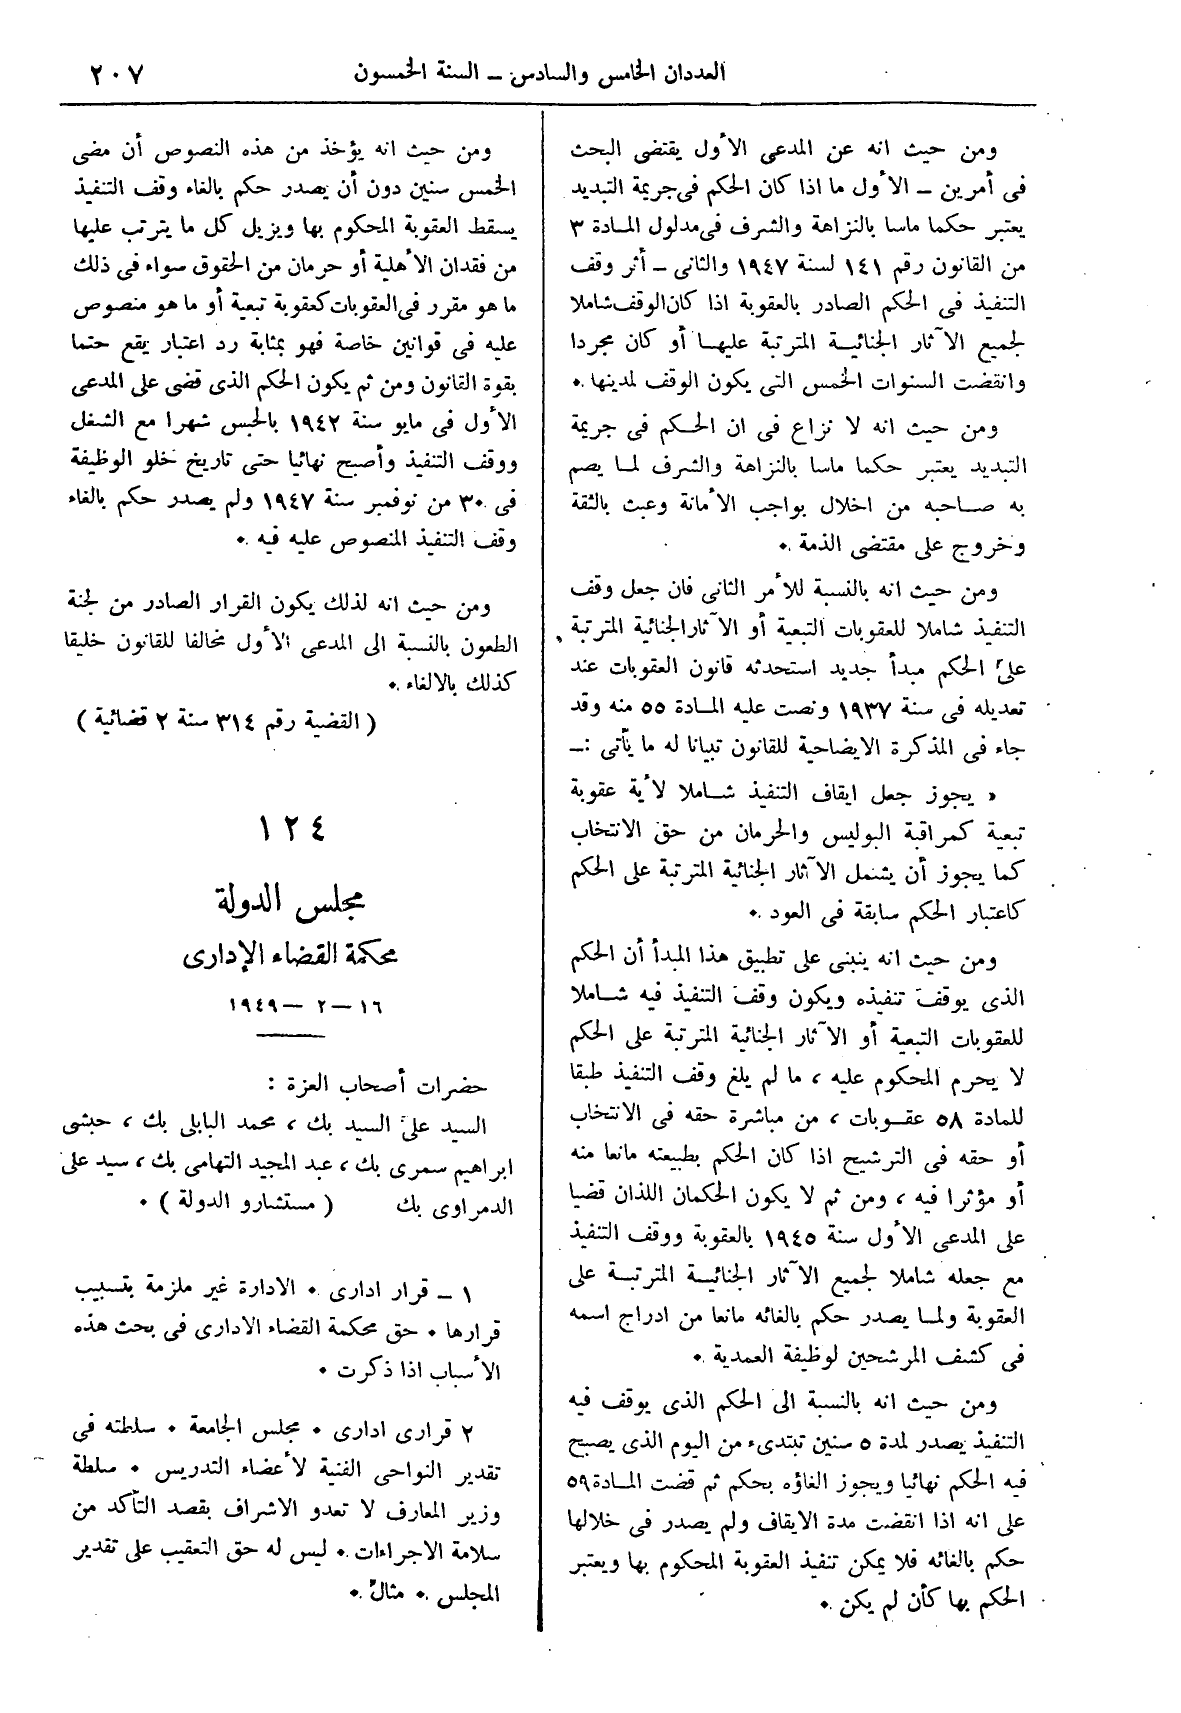 العددان الخامس والسادس – السنة الخمسون
٢٠٧
ومن حيث انه عن المدعى الأول يقتضى البحث
فى أمرين – الأول ما اذا كان الحكم فى جريمة التبديد
يعتبر حكما ماسا بالنزاهة والشرف فى مدلول المادة ٣
من القانون رقم ١٤١ لسنة ١٩٤٧ والثانى – أثر وقف
التنفيذ فى الحكم الصادر بالعقوبة اذا كان الوقف شاملا
لجميع الآثار الجنائية المترتبة عليها أو كان مجردا
وانقضت السنوات الخمس التى يكون الوقف لمدينها .
ومن حيث انه لا نزاع فى ان الحكم فى جريمة
التبديد يعتبر حكما ماسا بالنزاهة والشرف لما يصم
به صاحبه من اخلال بواجب الأمانة وعبث بالثقة
وخروج على مقتضى الذمة .
ومن حيث انه بالنسبة للأمر الثانى فان جعل وقف
التنفيذ شاملا للعقوبات التبعية أو الآثار الجنائية المترتبة
على الحكم مبدأ جديد استحدثه قانون العقوبات عند
تعديله فى سنة ١٩٣٧ ونصت عليه المادة ٥٥ منه وقد
جاء فى المذكرة الايضاحية للقانون تبيانا له ما يأتى :–
« يجوز جعل ايقاف التنفيذ شاملا لأية عقوبة
تبعية كمراقبة البوليس والحرمان من حق الانتخاب
كما يجوز أن يشمل الآثار الجنائية المترتبة على الحكم
كاعتبار الحكم سابقة فى العود .
ومن حيث انه ينبنى على تطبيق هذا المبدأ أن الحكم
الذى يوقف تنفيذه ويكون وقف التنفيذ فيه شاملا
للعقوبات التبعية أو الآثار الجنائية المترتبة على الحكم
لا يحرم المحكوم عليه ، ما لم يلغ وقف التنفيذ طبقا
للمادة ٥٨ عقوبات ، من مباشرة حقه فى الانتخاب
أو حقه فى الترشيح اذا كان الحكم بطبيعته مانعا منه
أو مؤثرا فيه ، ومن ثم لا يكون الحكمان اللذان قضيا
على المدعى الأول سنة ١٩٤٥ بالعقوبة ووقف التنفيذ
مع جعله شاملا لجميع الآثار الجنائية المترتبة على
العقوبة ولما يصدر حكم بالغائه مانعا من ادراج اسمه
فى كشف المرشحين لوظيفة العمدية .
ومن حيث انه بالنسبة الى الحكم الذى يوقف فيه
التنفيذ يصدر لمدة ٥ سنين تبتدىء من اليوم الذى يصبح
فيه الحكم نهائيا ويجوز الغاؤه بحكم ثم قضت المادة ٥٩
على انه اذا انقضت مدة الايقاف ولم يصدر فى خلالها
حكم بالغائه فلا يمكن تنفيذ العقوبة المحكوم بها ويعتبر
الحكم بها كأن لم يكن .
ومن حيث انه يؤخذ من هذه النصوص أن مضى
الخمس سنين دون أن يصدر حكم بالغاء وقف التنفيذ
يسقط العقوبة المحكوم بها ويزيل كل ما يترتب عليها
من فقدان الأهلية أو حرمان من الحقوق سواء فى ذلك
ما هو مقرر فى العقوبات كعقوبة تبعية أو ما هو منصوص
عليه فى قوانين خاصة فهو بمثابة رد اعتبار يقع حتما
بقوة القانون ومن ثم يكون الحكم الذى قضى على المدعى
الأول فى مايو سنة ١٩٤٢ بالحبس شهرا مع الشغل
ووقف التنفيذ وأصبح نهائيا حتى تاريخ خلو الوظيفة
فى ٣٠ من نوفمبر سنة ١٩٤٧ ولم يصدر حكم بالغاء
وقف التنفيذ المنصوص عليه فيه .
ومن حيث انه لذلك يكون القرار الصادر من لجنة
الطعون بالنسبة الى المدعى الأول مخالفا للقانون خليقا
كذلك بالالغاء .
( القضية رقم ٣١٤ سنة ٢ قضائية )
١٢٤
مجلس الدولة
محكمة القضاء الإدارى
١٦ – ٢ – ١٩٤٩
حضرات أصحاب العزة :
السيد على السيد بك ، محمد البابلى بك ، حبشى
ابراهيم سمرى بك ، عبد المجيد التهامى بك ، سيد على
الدمراوى بك ( مستشارو الدولة ) .
١ – قرار ادارى . الادارة غير ملزمة بتسبيب
قرارها . حق محكمة القضاء الادارى فى بحث هذه
الأسباب اذا ذكرت .
٢ قرارى ادارى . مجلس الجامعة . سلطته فى
تقدير النواحى الفنية لأعضاء التدريس . سلطة
وزير المعارف لا تعدو الاشراف بقصد التأكد من
سلامة الاجراءات . ليس له حق التعقيب على تقدير
المجلس . مثال .